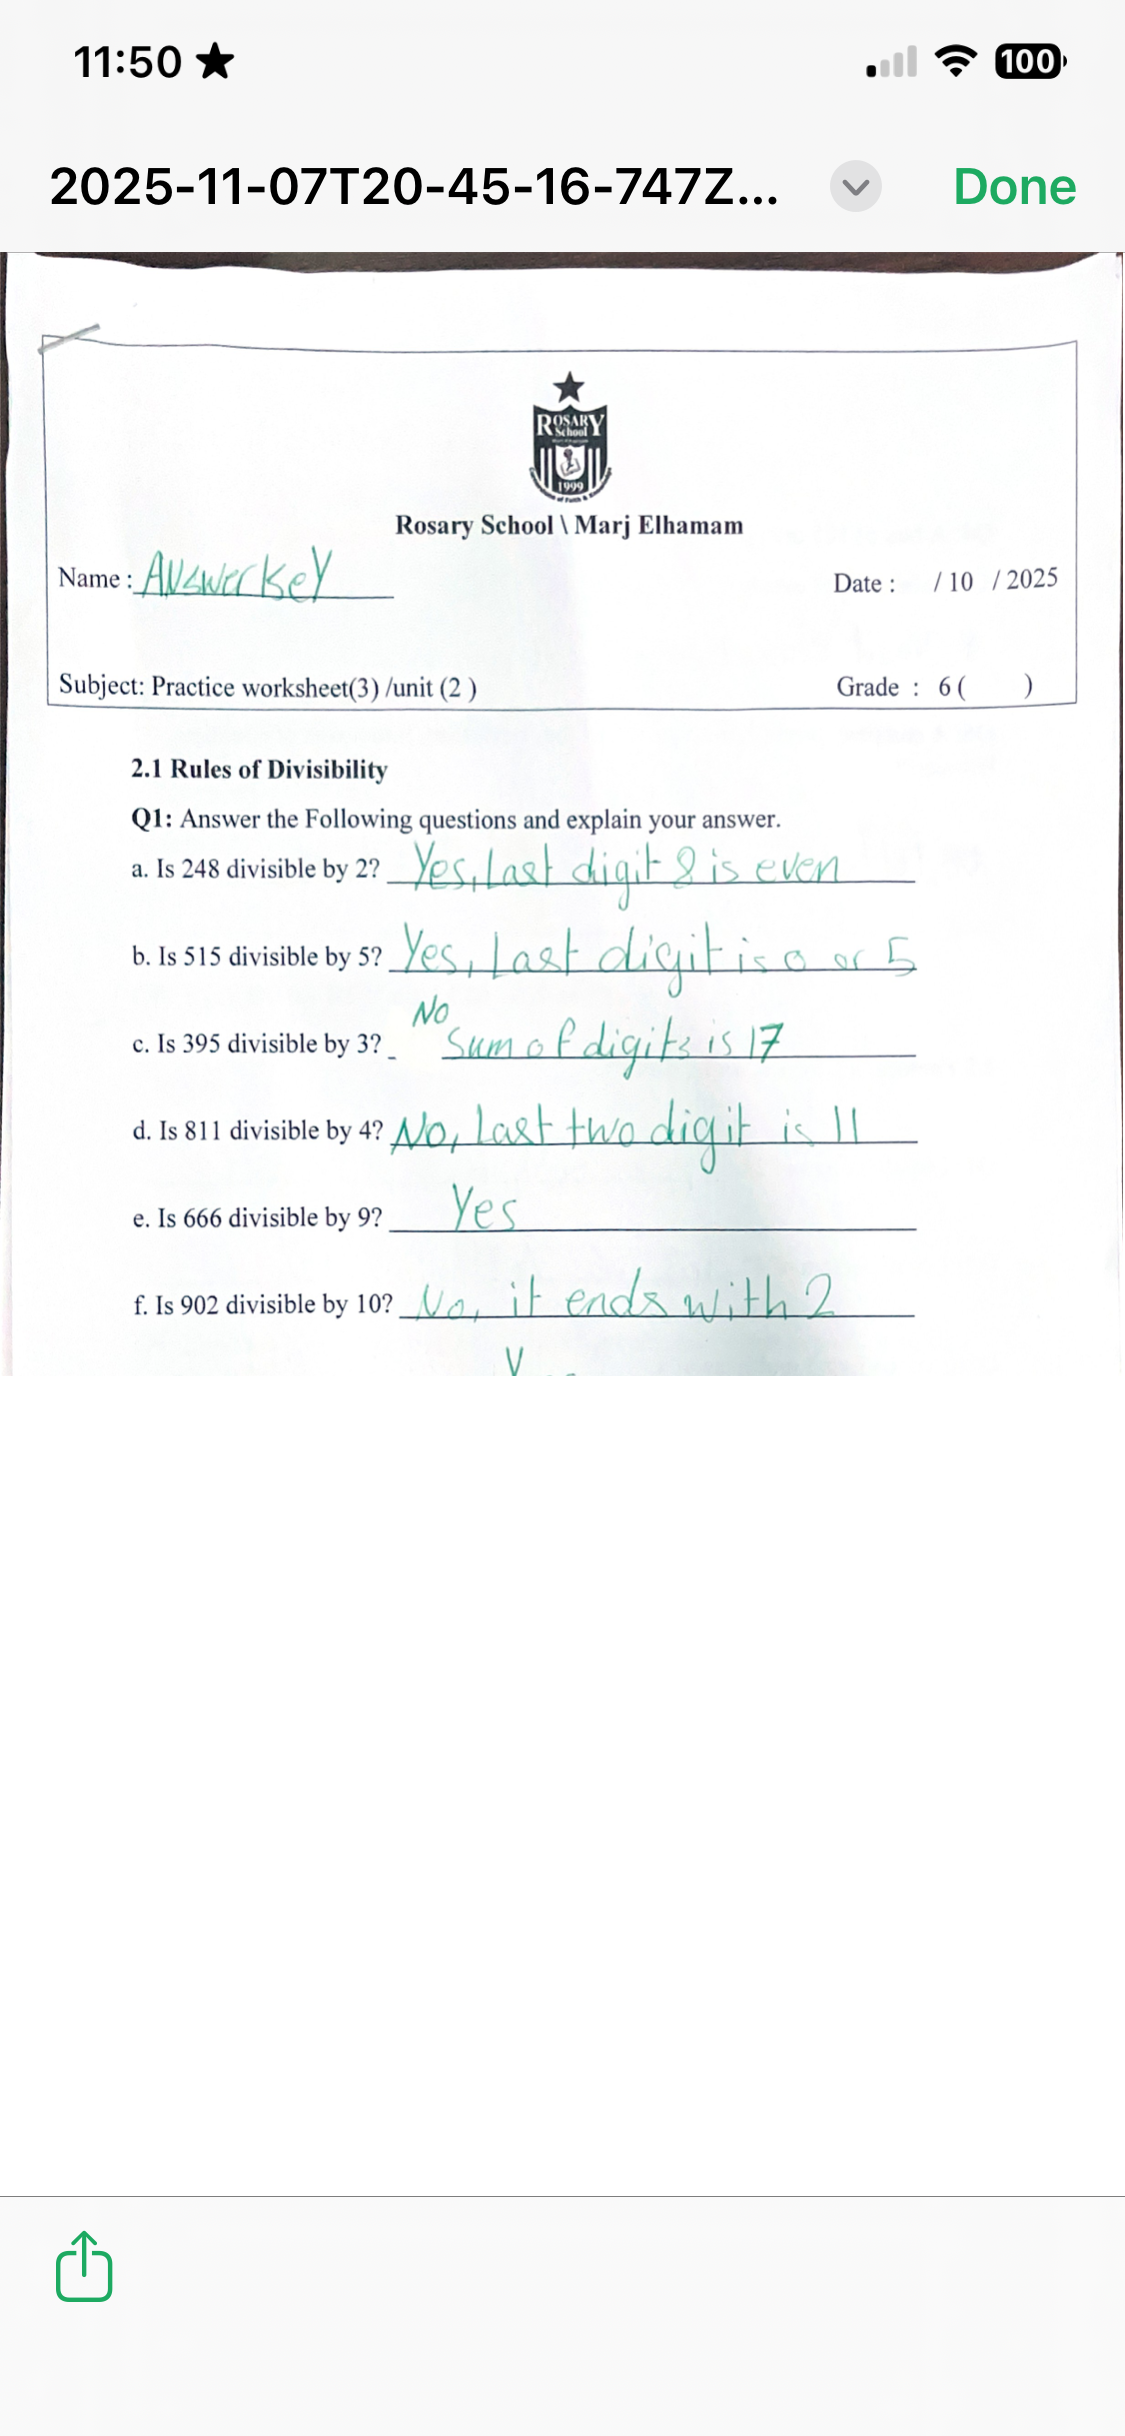 11:50
100
2025-11-07T20-45-16-747Z...
Done
ROSARY
School
1999
Rosary School \ Marj Elhamam
Name : Answer Key
Date : / 10 / 2025
Subject: Practice worksheet(3) /unit (2 )
Grade : 6 ( )
2.1 Rules of Divisibility
Q1: Answer the Following questions and explain your answer.
a. Is 248 divisible by 2? Yes, Last digit 8 is even
b. Is 515 divisible by 5? Yes, Last digit is 0 or 5
No
c. Is 395 divisible by 3? Sum of digits is 17
d. Is 811 divisible by 4? No, Last two digit is 11
e. Is 666 divisible by 9? Yes
f. Is 902 divisible by 10? No, it ends with 2